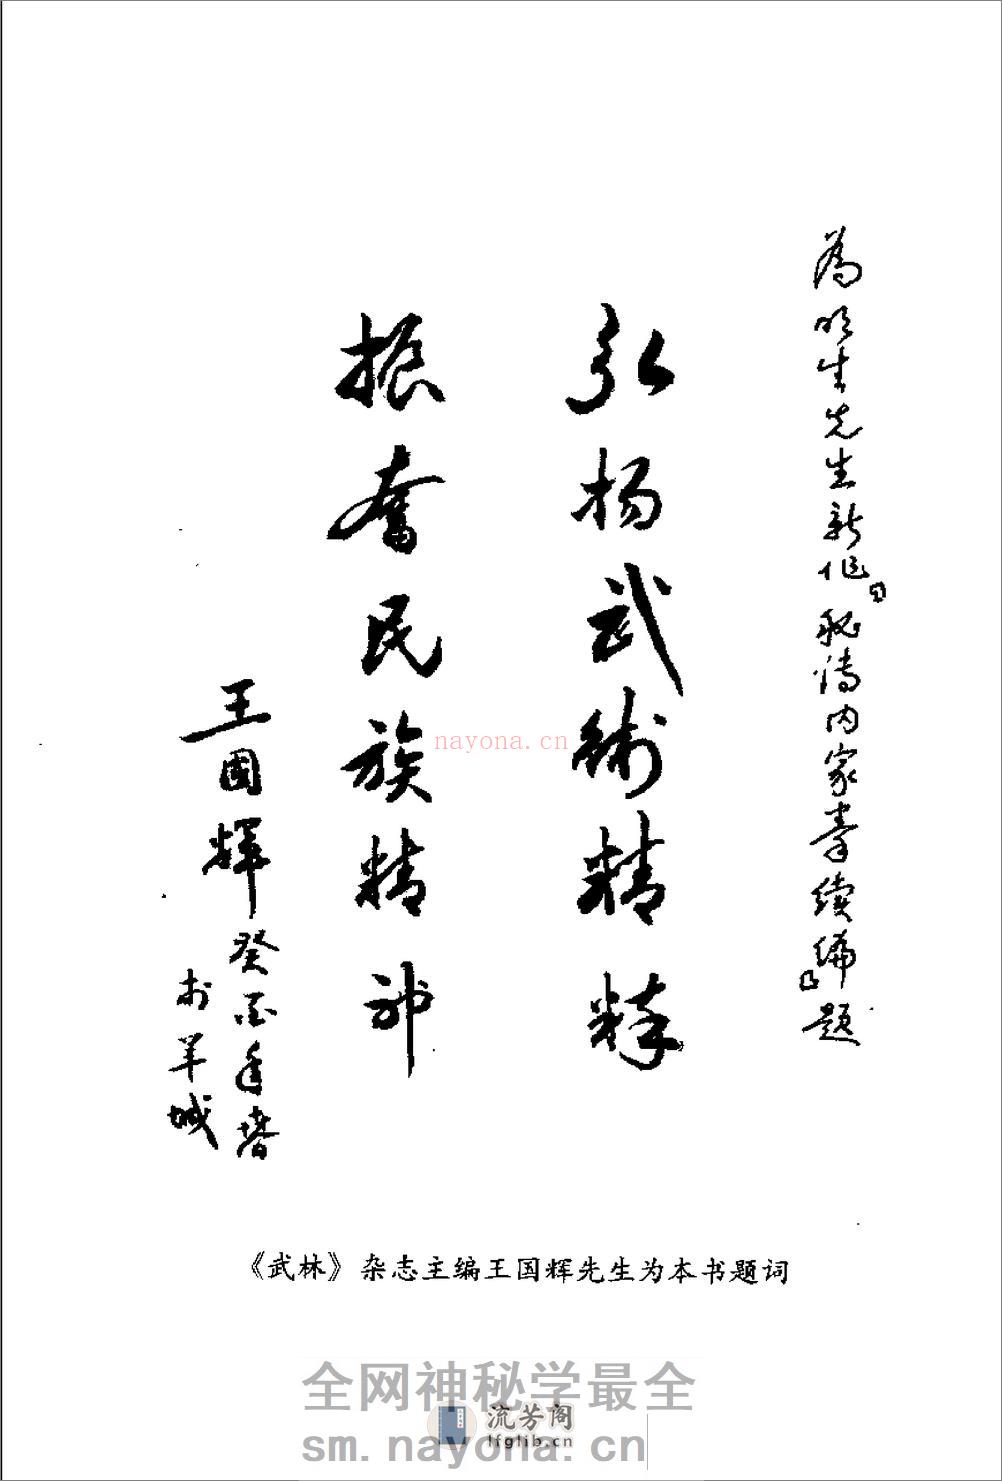 為明生先生新作『秘傳内家拳續編』題
弘扬武術精粹
振奮民族精神
王國輝
癸酉年春
於羊城
nayona.cn
《武林》杂志主编王国辉先生为本书题词
全网神秘学最全
流芳阁
lfglib.cn
sm.nayona.cn